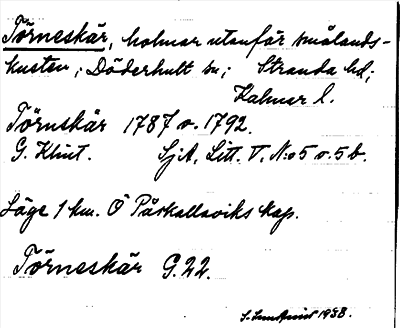 Törneskär, holmar utanför smålands-
kusten; Döderhult sn; Stranda hd;
Kalmar l.
Törnskär 1787 o. 1792.
G. Klint. SjA, Litt. V. N:o 5 o. 5 b.
Läge 1 km. Ö Påskallaviks kap.
Törneskär G. 22.
S. Lundqvist 1938.